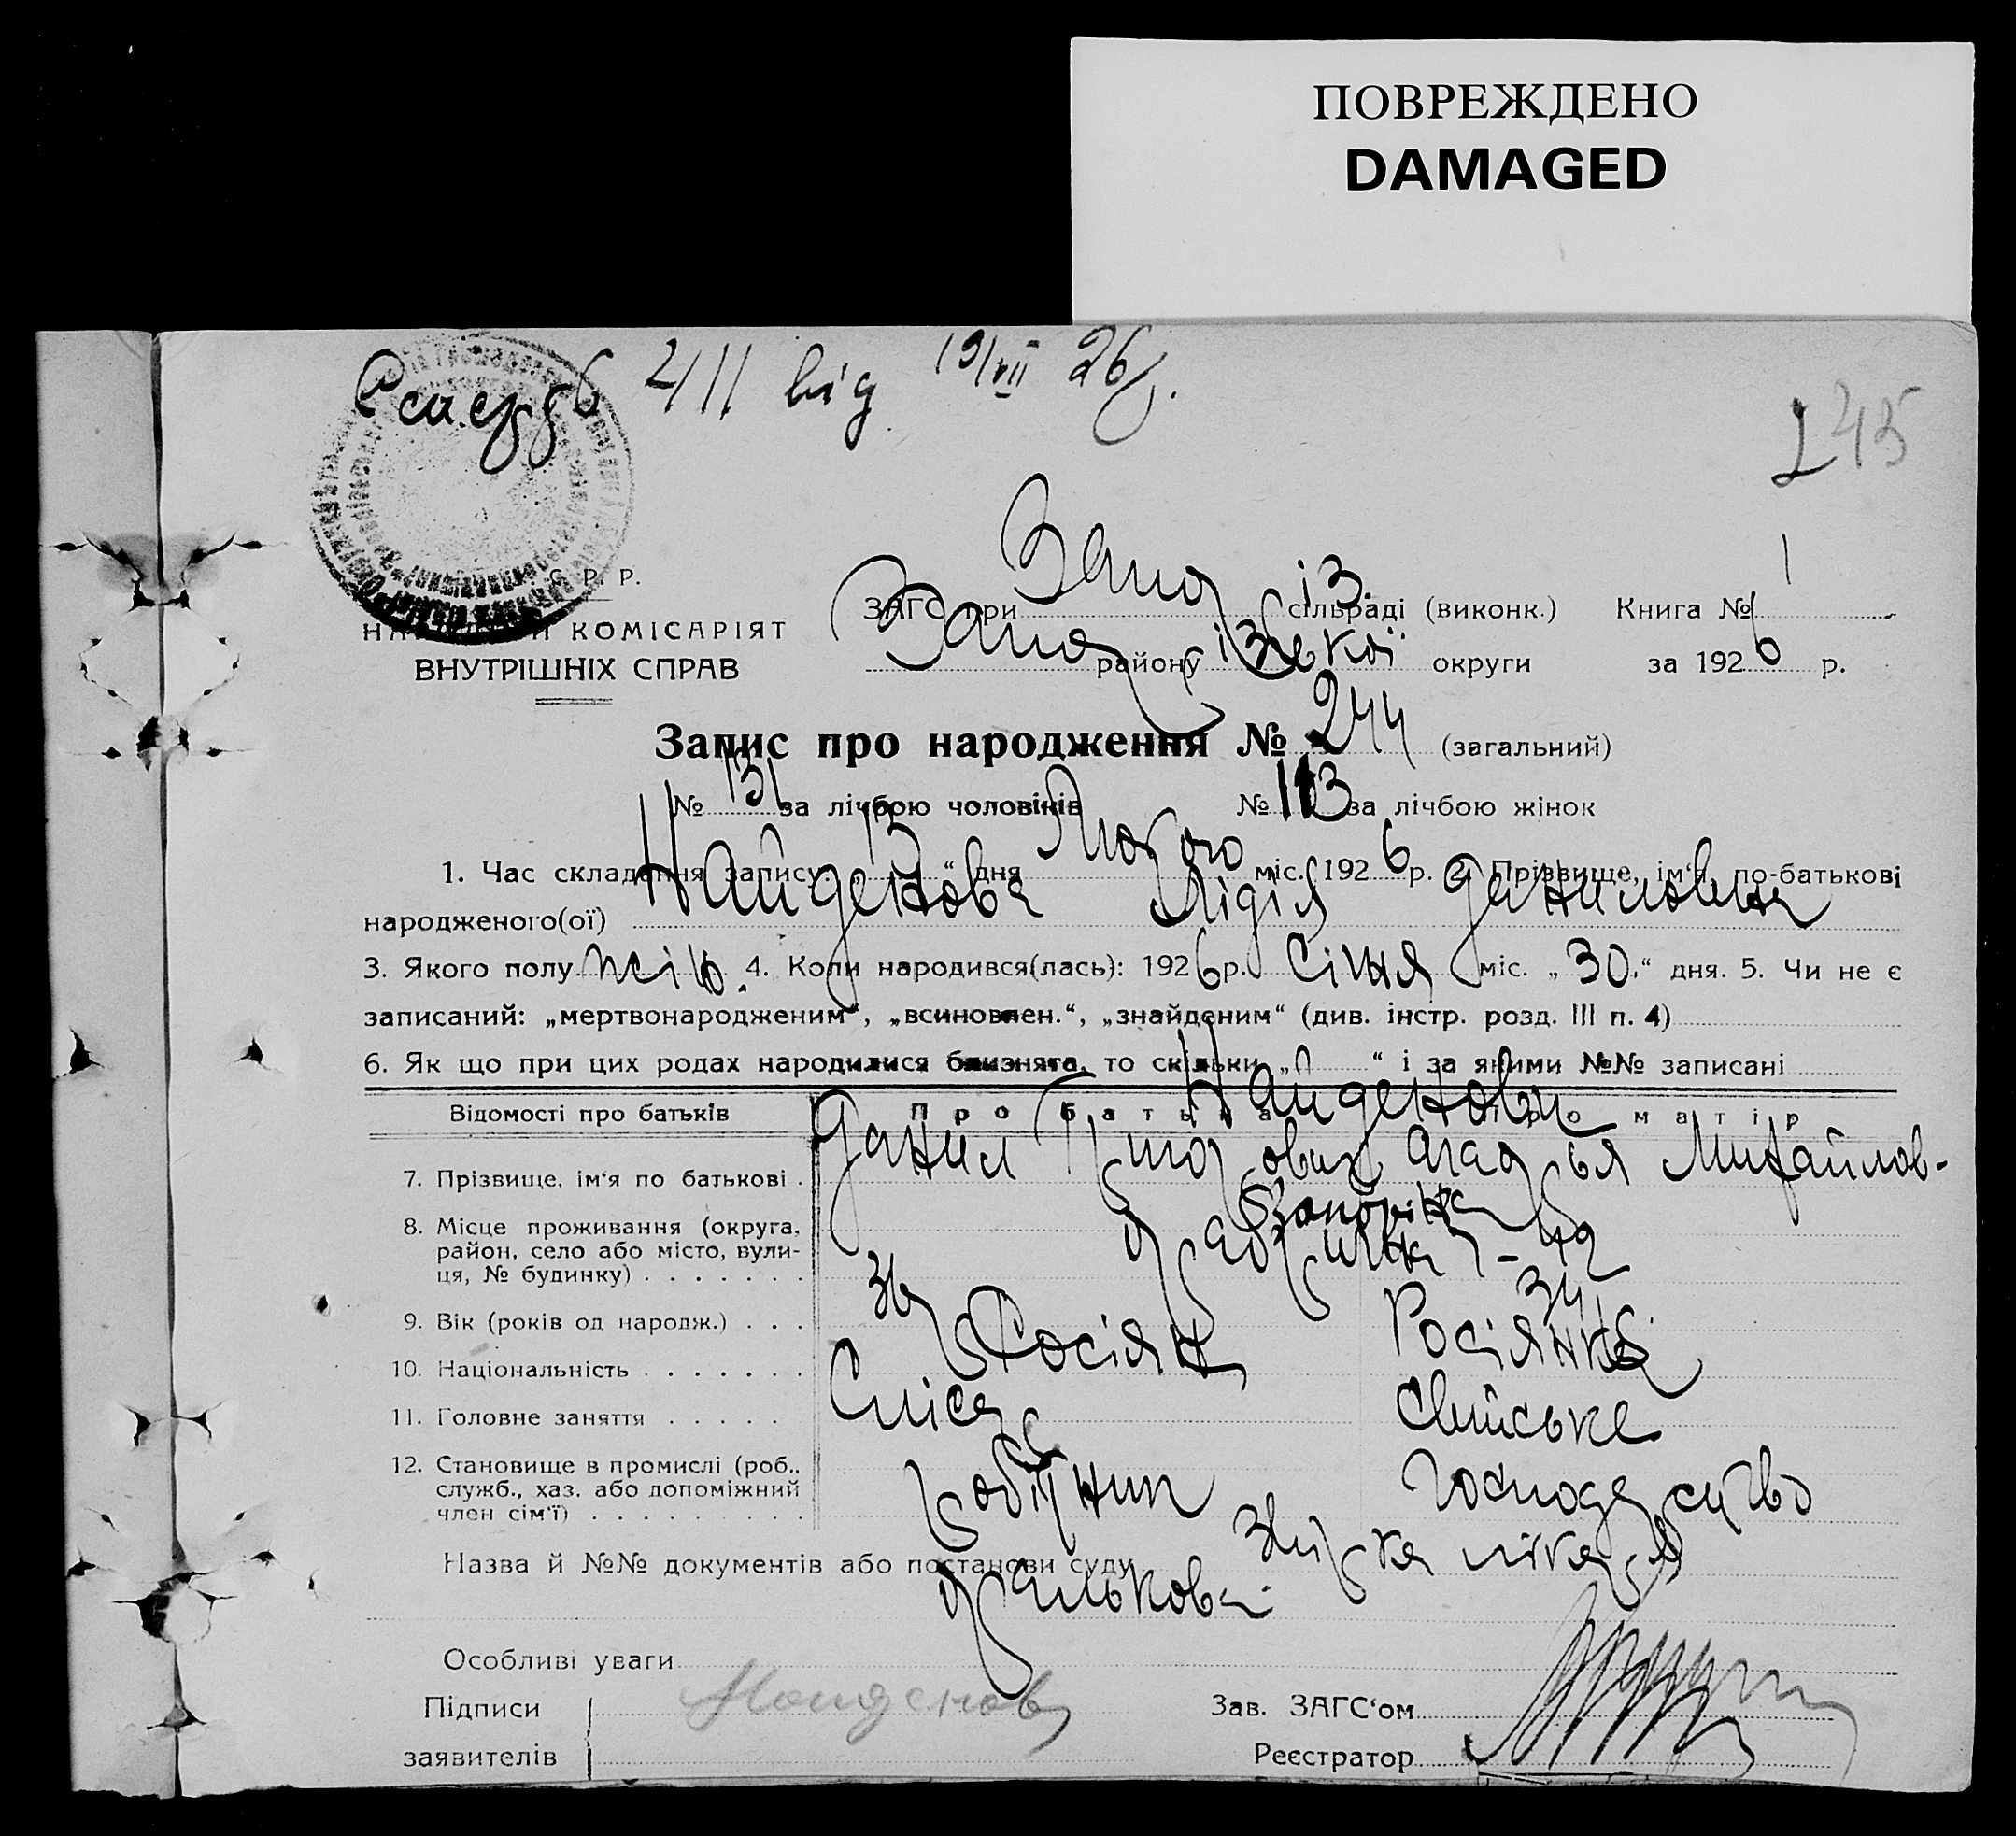 ПОВРЕЖДЕНО
DAMAGED
411 від 19/VII 26 р.
245
С. Р. Р.
КОМІСАРІЯТ
ВНУТРІШНІХ СПРАВ
ЗАГС при Запоріз. сільраді (виконк.) Книга № 1
Запорізької району округи за 1926 р.
Запис про народження № 244 (загальний)
№ 131 за лічбою чоловіків № 113 за лічбою жінок
1. Час складання запису: „13“ дня Лютого міс. 1926 р. 2. Прізвище, ім'я, по-батькові
народженого(ої) Найденова Лідія Даниловна
3. Якого полу жіно. 4. Коли народився(лась): 1926 р. Січня міс. „30“ дня. 5. Чи не є
записаний: „мертвонародженим“, „всиновлен.“, „знайденим“ (див. інстр. розд. III п. 4)
6. Як що при цих родах народилися близнята, то скільки „ “ і за якими №№ записані
Відомості про батьків Про батька Про матір
Найденови
7. Прізвище, ім'я по батькові . Данил Агад ья Михайлов-
8. Місце проживання (округа, район, село або місто, вулиця, № будинку) . . . . . . . 42
9. Вік (років од народж.) . . . 36 34
10. Національність . . . . . . . Росіян Росіянка
11. Головне заняття . . . . . Слісар Свійське
12. Становище в промислі (роб., служб., хаз. або допоміжний член сім'ї) . . . . . . . . . робітник господарство
Назва й №№ документів або постанови суду Звірка лікаря
Особливі уваги
Підписи Найденов Зав. ЗАГС'ом
заявителів Реєстратор